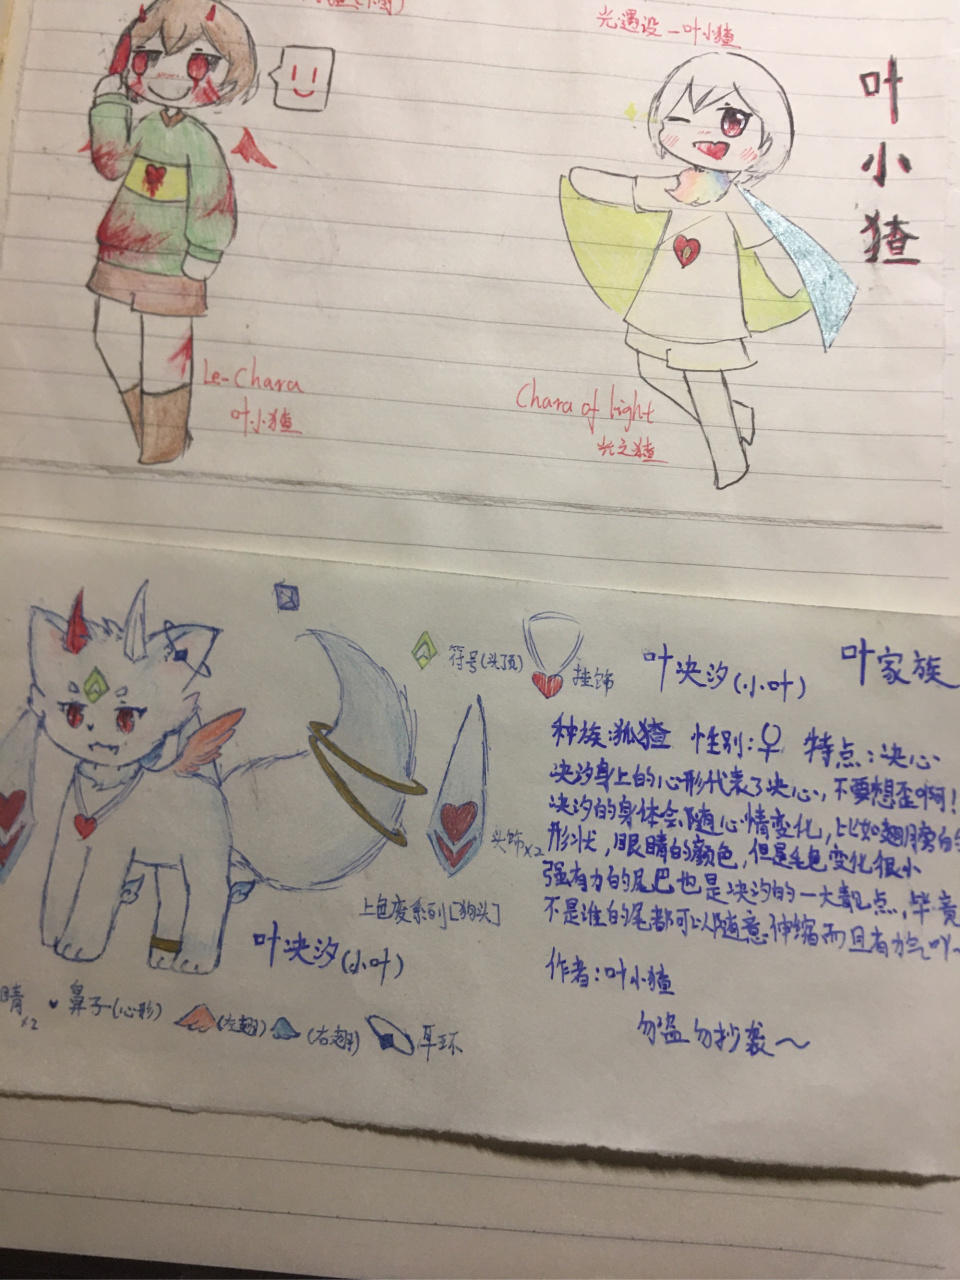 光遇设—叶小猹
叶小猹
Le-Chara
叶小猹
Chara of light
光之猹
符号(头顶)
挂饰
叶决汐(小叶)
叶家族
种族:狐猹 性别:♀ 特点:决心
决汐身上的心形代表了决心,不要想歪啊!
决汐的身体会随心情变化,比如翅膀的
形状,眼睛的颜色,但是毛色变化很小
强有力的尾巴也是决汐的一大亮点,毕竟
不是谁的尾都可以随意伸缩而且有力气吖~
头饰x2
上色变系列[狗头]
叶决汐(小叶)
作者:叶小猹
勿盗勿抄袭~
睛x2
鼻子(心形)
(左翅)
(右翅)
耳环